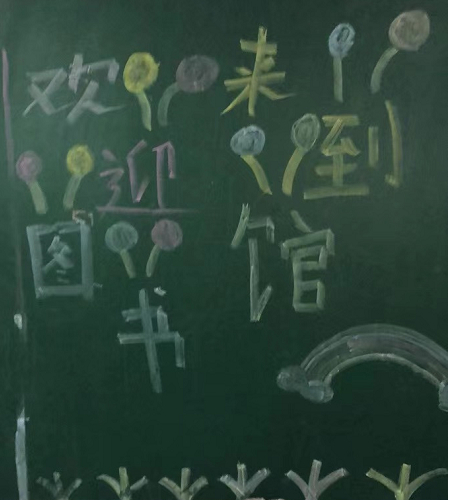 欢 来
迎 到
图 馆
书